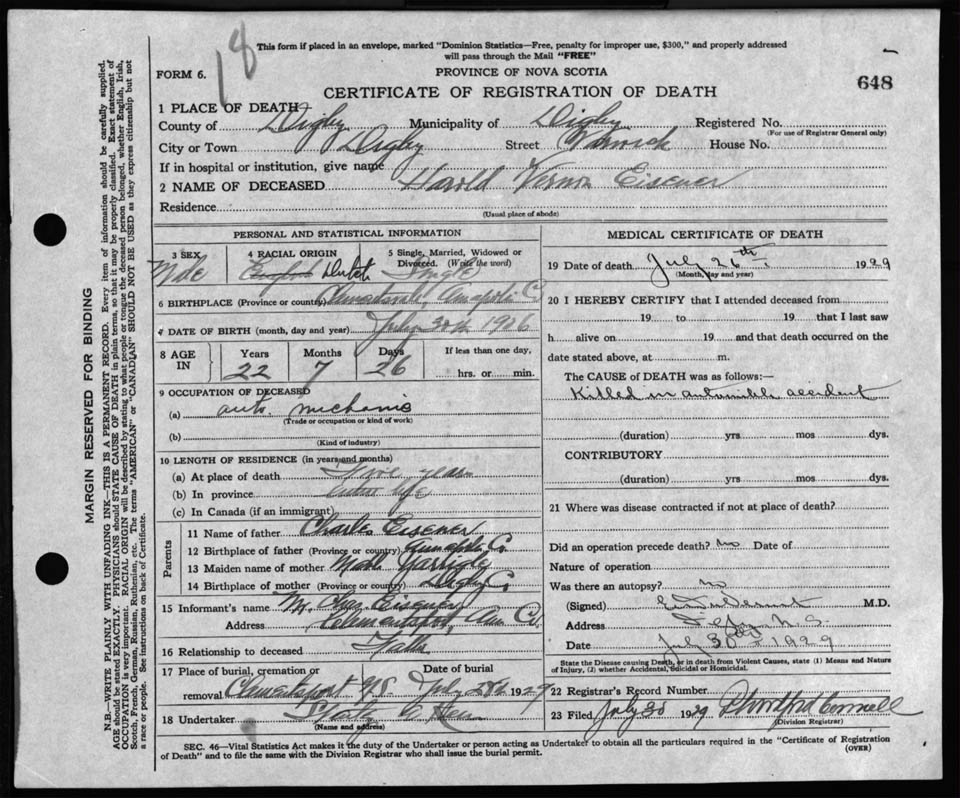 18
This form if placed in an envelope, marked "Dominion Statistics—Free, penalty for improper use, $300," and properly addressed
will pass through the Mail "FREE"
FORM 6.
PROVINCE OF NOVA SCOTIA
648
CERTIFICATE OF REGISTRATION OF DEATH
1 PLACE OF DEATH
County of Digby Municipality of Digby Registered No.
(For use of Registrar General only)
City or Town Digby Street Warwick House No.
If in hospital or institution, give name
2 NAME OF DECEASED Harold Vernon Eisener
Residence
(Usual place of abode)
PERSONAL AND STATISTICAL INFORMATION
3 SEX 4 RACIAL ORIGIN 5 Single, Married, Widowed or
Divorced. (Write the word)
Male English Dutch Single
6 BIRTHPLACE (Province or country) Annapolis Co
7 DATE OF BIRTH (month, day and year) 1906
8 AGE IN Years Months Days If less than one day,
22 7 26 hrs. or min.
9 OCCUPATION OF DECEASED
(a) auto mechanic
(Trade or occupation or kind of work)
(b)
(Kind of industry)
10 LENGTH OF RESIDENCE (in years and months)
(a) At place of death years
(b) In province entire life
(c) In Canada (if an immigrant)
Parents
11 Name of father Charles Eisener
12 Birthplace of father (Province or country) Annapolis Co.
13 Maiden name of mother
14 Birthplace of mother (Province or country) Digby Co.
15 Informant's name Mr. Chas Eisener
Address Clementsport, Ann Co
16 Relationship to deceased Father
17 Place of burial, cremation or Date of burial
removal Clementsport NS July 28th 1929
18 Undertaker
(Name and address)
MEDICAL CERTIFICATE OF DEATH
19 Date of death July 26th 1929
(Month, day and year)
20 I HEREBY CERTIFY that I attended deceased from
19 to 19 that I last saw
h alive on 19 and that death occurred on the
date stated above, at m.
The CAUSE of DEATH was as follows:—
Killed in automobile accident
(duration) yrs mos dys.
CONTRIBUTORY
(duration) yrs mos dys.
21 Where was disease contracted if not at place of death?
Did an operation precede death? no Date of
Nature of operation
Was there an autopsy? no
(Signed) M.D.
Address N.S.
Date July 30th 1929
State the Disease causing Death, or in death from Violent Causes, state (1) Means and Nature
of Injury, (2) whether Accidental, Suicidal or Homicidal.
22 Registrar's Record Number
23 Filed July 30 1929
(Division Registrar)
SEC. 46—Vital Statistics Act makes it the duty of the Undertaker or person acting as Undertaker to obtain all the particulars required in the "Certificate of Registration
of Death" and to file the same with the Division Registrar who shall issue the burial permit.
(OVER)
MARGIN RESERVED FOR BINDING
N.B.—WRITE PLAINLY WITH UNFADING INK—THIS IS A PERMANENT RECORD. Every item of information should be carefully supplied.
AGE should be stated EXACTLY. PHYSICIANS should STATE CAUSE OF DEATH in plain terms, so that it may be properly classified. Exact statement of
OCCUPATION is very important. RACIAL ORIGIN will be described by stating to what people or tongue the deceased person belonged, whether English, Irish,
Scotch, French, German, Russian, Ruthenian, etc. The terms "AMERICAN" or "CANADIAN" SHOULD NOT BE USED as they express citizenship but not
a race or people. See instructions on back of Certificate.